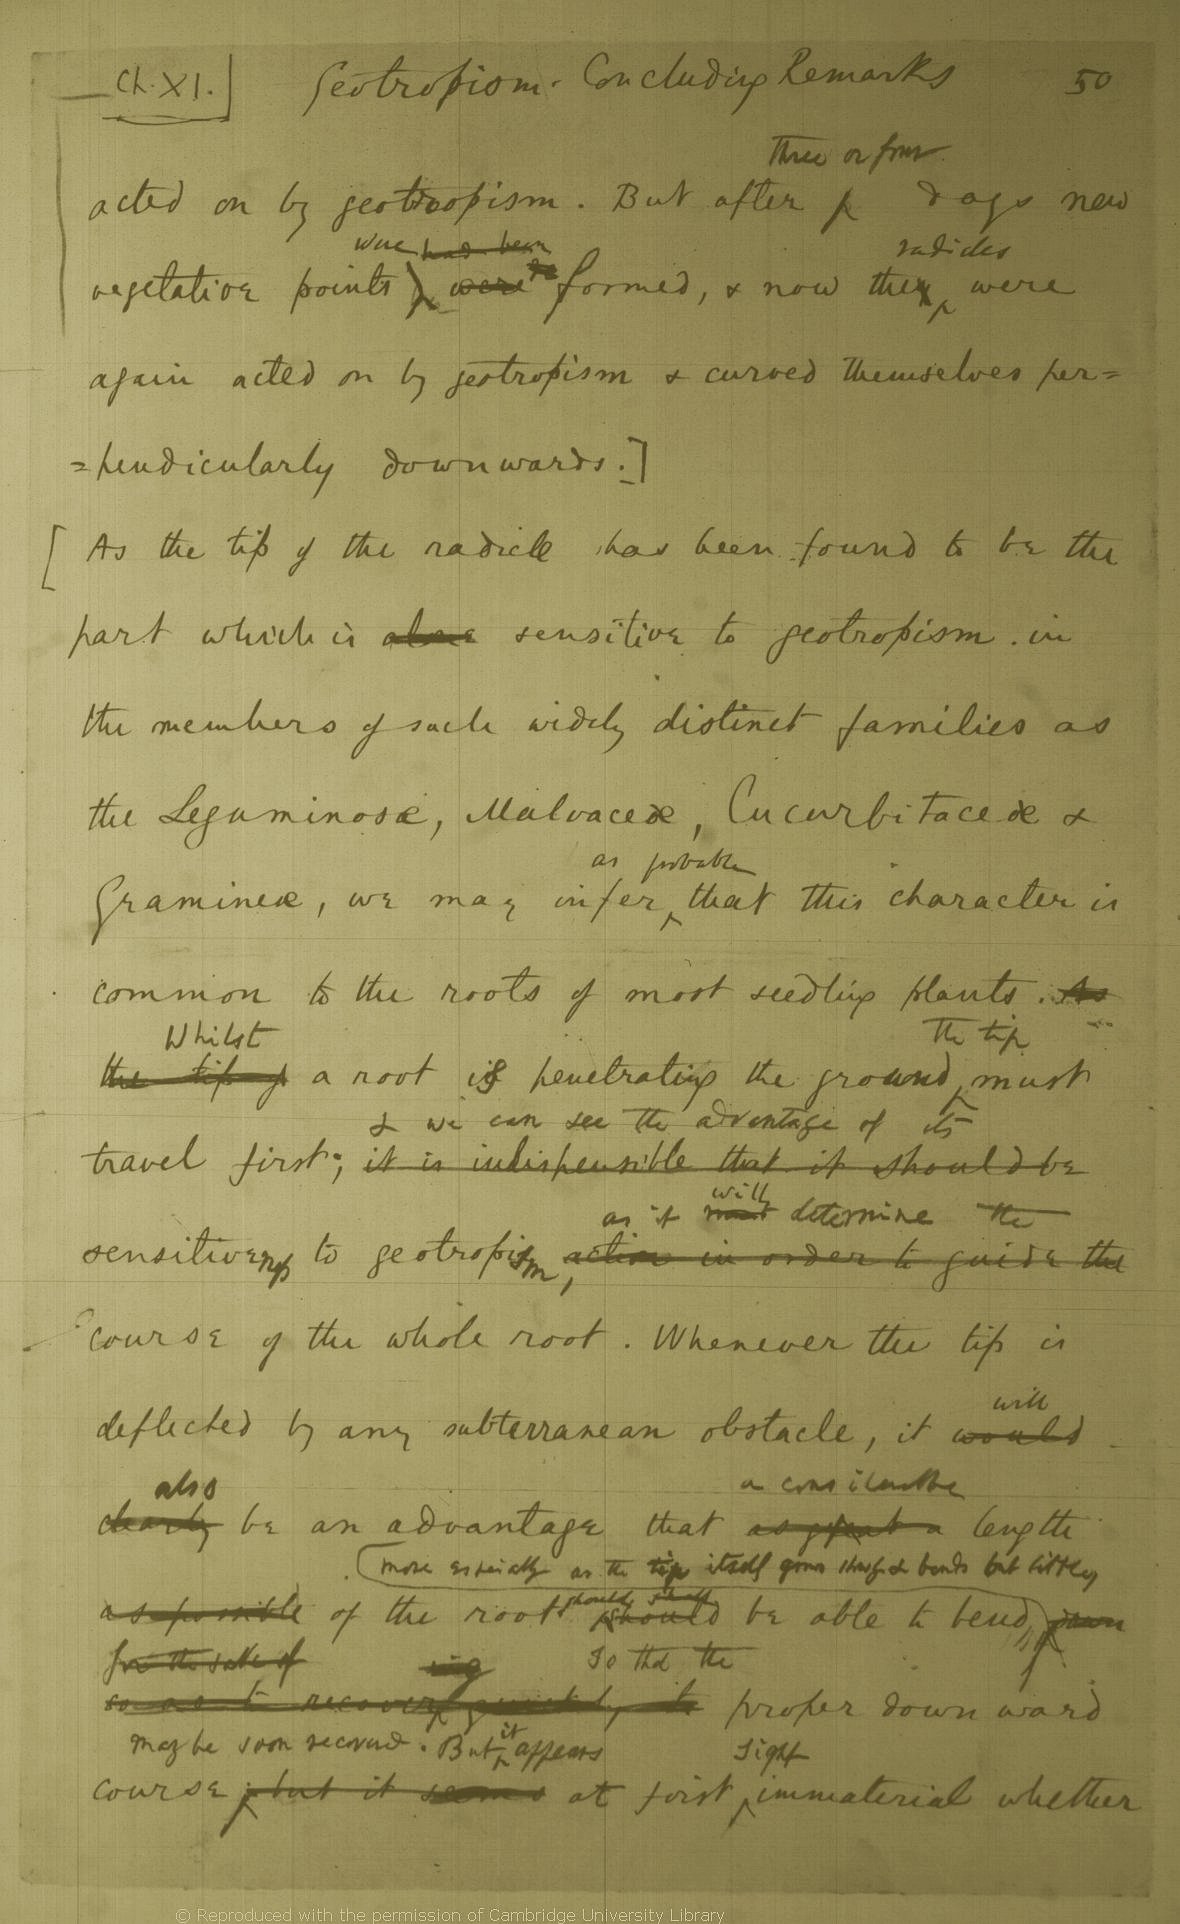 Ch. XI.] Geotropism. Concluding Remarks 50
three or four
acted on by geotropism. But after days new
were had been radicles
vegetative points were formed, & now they were
again acted on by geotropism & curved themselves per=
=pendicularly downwards.]
[As the tip of the radicle has been found to be the
part which is alone sensitive to geotropism in
the members of such widely distinct families as
the Leguminosæ, Malvaceæ, Cucurbitaceæ &
as probable
Gramineæ, we may infer that this character is
common to the roots of most seedling plants. As
Whilst The tip
the tip of a root is penetrating the ground, must
& we can see the advantage of its
travel first; it is indispensible that it should be
as it will must determine the
sensitiveness to geotropism, action in order to guide the
course of the whole root. Whenever the tip is
will
deflected by any subterranean obstacle, it would
also a considerable
clearly be an advantage that as great a length
more especially as the tip itself grows slowly & bends but little,
should shall
as possible of the root should be able to bend, down
for the sake of ing So that the
so as to recover quickly its proper downward
may be soon recovered. But it appears sight
course; but it seems at first immaterial whether
© Reproduced with the permission of Cambridge University Library